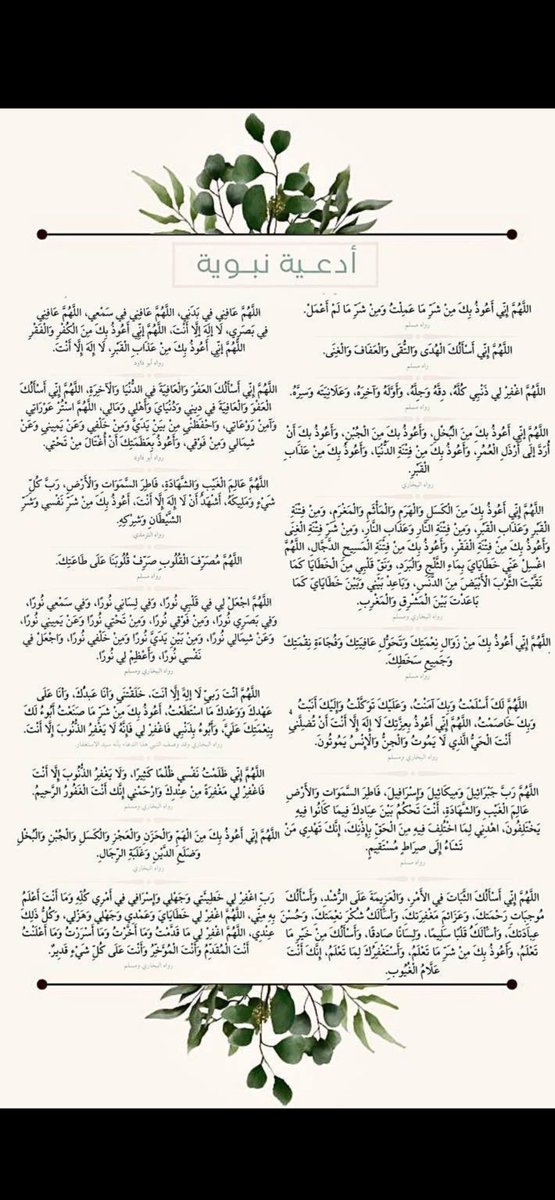 أدعـية نبـوية
اللَّهُمَّ إِنِّي أَعُوذُ بِكَ مِنْ شَرِّ مَا عَمِلْتُ وَمِنْ شَرِّ مَا لَمْ أَعْمَلْ.
رواه مسلم
اللَّهُمَّ إِنِّي أَسْأَلُكَ الْهُدَى وَالتُّقَى وَالعَفَافَ وَالْغِنَى.
راه مسلم
اللَّهُمَّ اغْفِرْ لِي ذَنْبِي كُلَّهُ، دِقَّهُ وَجِلَّهُ، وَأَوَّلَهُ وَآخِرَهُ، وَعَلَانِيَتَه وَسِرَّهُ.
رواه مسلم
اللَّهُمَّ إِنِّي أَعُوذُ بكَ مِنَ الْبُخْلِ، وَأَعُوذُ بكَ مِنَ الْجُبْنِ، وَأَعُوذُ بكَ أَنْ
أُرَدَّ إِلَى أَرْذَلِ الْعُمُرِ، وَأَعُوذُ بكَ مِنْ فِتْنَةِ الدُّنْيَا، وَأَعُوذُ بكَ مِنْ عَذَابِ
الْقَبْرِ.
رواه البخاري
اللَّهُمَّ إِنِّي أَعُوذُ بِكَ مِنَ الْكَسَلِ وَالْهَرَمِ وَالْمَأْثَمِ وَالْمَغْرَمِ، وَمِنْ فِتْنَةِ
الْقَبْرِ وَعَذَابِ الْقَبْرِ، وَمِنْ فِتْنَةِ النَّارِ وَعَذَابِ النَّارِ، وَمِنْ شَرِّ فِتْنَةِ الْغِنَى
وَأَعُوذُ بِكَ مِنْ فِتْنَةِ الْفَقْرِ، وَأَعُوذُ بِكَ مِنْ فِتْنَةِ الْمَسِيحِ الدَّجَّالِ، اللَّهُمَّ
اغْسِلْ عَنِّي خَطَايَايَ بِمَاءِ الثَّلْجِ وَالْبَرَدِ، وَنَقِّ قَلْبِي مِنَ الْخَطَايَا كَمَا
نَقَّيْتَ الثَّوْبَ الْأَبْيَضَ مِنَ الدَّنَسِ، وَبَاعِدْ بَيْنِي وَبَيْنَ خَطَايَايَ كَمَا
بَاعَدْتَ بَيْنَ الْمَشْرِقِ وَالْمَغْرِبِ.
رواه البخاري ومسلم
اللَّهُمَّ إِنِّي أَعُوذُ بِكَ مِنْ زَوَالِ نِعْمَتِكَ وَتَحَوُّلِ عَافِيَتِكَ وَفُجَاءَةِ نِقْمَتِكَ
وَجَمِيعِ سَخَطِكَ.
رواه مسلم
اللَّهُمَّ لَكَ أَسْلَمْتُ وَبِكَ آمَنْتُ، وَعَلَيْكَ تَوَكَّلْتُ وَإِلَيْكَ أَنَبْتُ
وَبِكَ خَاصَمْتُ، اللَّهُمَّ إِنِّي أَعُوذُ بِعِزَّتِكَ لَا إِلَهَ إِلَّا أَنْتَ أَنْ تُضِلَّنِي
أَنْتَ الْحَيُّ الَّذِي لَا يَمُوتُ وَالْجِنُّ وَالْإِنْسُ يَمُوتُونَ.
رواه البخاري ومسلم
اللَّهُمَّ رَبَّ جَبْرَائِيلَ وَمِيكَائِيلَ وَإِسْرَافِيلَ، فَاطِرَ السَّمَوَاتِ وَالْأَرْضِ
عَالِمَ الْغَيْبِ وَالشَّهَادَةِ، أَنْتَ تَحْكُمُ بَيْنَ عِبَادِكَ فِيمَا كَانُوا فِيهِ
يَخْتَلِفُونَ، اهْدِنِي لِمَا اخْتُلِفَ فِيهِ مِنَ الْحَقِّ بِإِذْنِكَ، إِنَّكَ تَهْدِي مَنْ
تَشَاءُ إِلَى صِرَاطٍ مُسْتَقِيمٍ.
رواه مسلم
اللَّهُمَّ إِنِّي أَسْأَلُكَ الثَّبَاتَ فِي الأَمْرِ، وَالْعَزِيمَةَ عَلَى الرُّشْدِ، وَأَسْأَلُكَ
مُوجِبَاتِ رَحْمَتِكَ، وَعَزَائِمَ مَغْفِرَتِكَ، وَأَسْأَلُكَ شُكْرَ نِعْمَتِكَ، وَحُسْنَ
عِبَادَتِكَ، وَأَسْأَلُكَ قَلْبًا سَلِيمًا، وَلِسَانًا صَادِقًا، وَأَسْأَلُكَ مِنْ خَيْرِ مَا
تَعْلَمُ، وَأَعُوذُ بِكَ مِنْ شَرِّ مَا تَعْلَمُ، وَأَسْتَغْفِرُكَ لِمَا تَعْلَمُ، إِنَّكَ أَنْتَ
عَلَّامُ الْغُيُوبِ.
اللَّهُمَّ عَافِنِي فِي بَدَنِي، اللَّهُمَّ عَافِنِي فِي سَمْعِي، اللَّهُمَّ عَافِنِي
فِي بَصَرِي، لَا إِلَهَ إِلَّا أَنْتَ، اللَّهُمَّ إِنِّي أَعُوذُ بِكَ مِنَ الْكُفْرِ وَالْفَقْرِ
اللَّهُمَّ إِنِّي أَعُوذُ بِكَ مِنْ عَذَابِ القَبْرِ، لَا إِلَهَ إِلَّا أَنْتَ.
رواه أبو داود
اللَّهُمَّ إِنِّي أَسْأَلُكَ العَفْوَ وَالْعَافِيَةَ فِي الدُّنْيَا وَالْآخِرَةِ، اللَّهُمَّ إِنِّي أَسْأَلُكَ
الْعَفْوَ وَالْعَافِيَةَ فِي دِينِي وَدُنْيَايَ وَأَهْلِي وَمَالِي، اللَّهُمَّ اسْتُرْ عَوْرَاتِي
وَآمِنْ رَوْعَاتِي، وَاحْفَظْنِي مِنْ بَيْنِ يَدَيَّ وَمِنْ خَلْفِي وَعَنْ يَمِينِي وَعَنْ
شِمَالِي وَمِنْ فَوْقِي، وَأَعُوذُ بِعَظَمَتِكَ أَنْ أُغْتَالَ مِنْ تَحْتِي.
رواه أبو داود
اللَّهُمَّ عَالِمَ الْغَيْبِ وَالشَّهَادَةِ، فَاطِرَ السَّمَوَاتِ وَالْأَرْضِ، رَبَّ كُلِّ
شَيْءٍ وَمَلِيكَهُ، أَشْهَدُ أَنْ لَا إِلَهَ إِلَّا أَنْتَ، أَعُوذُ بِكَ مِنْ شَرِّ نَفْسِي وَشَرِّ
الشَّيْطَانِ وَشِرْكِهِ.
رواه الترمذي
اللَّهُمَّ مُصَرِّفَ الْقُلُوبِ صَرِّفْ قُلُوبَنَا عَلَى طَاعَتِكَ.
رواه مسلم
اللَّهُمَّ اجْعَلْ لِي فِي قَلْبِي نُورًا، وَفِي لِسَانِي نُورًا، وَفِي سَمْعِي نُورًا،
وَفِي بَصَرِي نُورًا، وَمِنْ فَوْقِي نُورًا، وَمِنْ تَحْتِي نُورًا، وَعَنْ يَمِينِي نُورًا،
وَعَنْ شِمَالِي نُورًا، وَمِنْ بَيْنِ يَدَيَّ نُورًا وَمِنْ خَلْفِي نُورًا، وَاجْعَلْ فِي
نَفْسِي نُورًا، وَأَعْظِمْ لِي نُورًا.
رواه البخاري ومسلم
اللَّهُمَّ أَنْتَ رَبِّي لَا إِلَهَ إِلَّا أَنْتَ، خَلَقْتَنِي وَأَنَا عَبْدُكَ، وَأَنَا عَلَى
عَهْدِكَ وَوَعْدِكَ مَا اسْتَطَعْتُ، أَعُوذُ بِكَ مِنْ شَرِّ مَا صَنَعْتُ أَبُوءُ لَكَ
بِنِعْمَتِكَ عَلَيَّ، وَأَبُوءُ بِذَنْبِي فَاغْفِرْ لِي فَإِنَّهُ لَا يَغْفِرُ الذُّنُوبَ إِلَّا أَنْتَ.
رواه البخاري وقد وصف النبي هذا الدعاء بأنه سيد الاستغفار
اللَّهُمَّ إِنِّي ظَلَمْتُ نَفْسِي ظُلْمًا كَثِيرًا، وَلَا يَغْفِرُ الذُّنُوبَ إِلَّا أَنْتَ
فَاغْفِرْ لِي مَغْفِرَةً مِنْ عِنْدِكَ وَارْحَمْنِي إِنَّكَ أَنْتَ الْغَفُورُ الرَّحِيمُ.
رواه البخاري ومسلم
اللَّهُمَّ إِنِّي أَعُوذُ بِكَ مِنَ الْهَمِّ وَالْحَزَنِ وَالْعَجْزِ وَالْكَسَلِ وَالْجُبْنِ وَالْبُخْلِ
وَضَلَعِ الدَّيْنِ وَغَلَبَةِ الرِّجَالِ.
رواه البخاري
رَبِّ اغْفِرْ لِي خَطِيئَتِي وَجَهْلِي وَإِسْرَافِي فِي أَمْرِي كُلِّهِ وَمَا أَنْتَ أَعْلَمُ
بِهِ مِنِّي، اللَّهُمَّ اغْفِرْ لِي خَطَايَايَ وَعَمْدِي وَجَهْلِي وَهَزْلِي، وَكُلُّ ذَلِكَ
عِنْدِي، اللَّهُمَّ اغْفِرْ لِي مَا قَدَّمْتُ وَمَا أَخَّرْتُ وَمَا أَسْرَرْتُ وَمَا أَعْلَنْتُ
أَنْتَ الْمُقَدِّمُ وَأَنْتَ الْمُؤَخِّرُ وَأَنْتَ عَلَى كُلِّ شَيْءٍ قَدِيرٌ.
رواه البخاري ومسلم